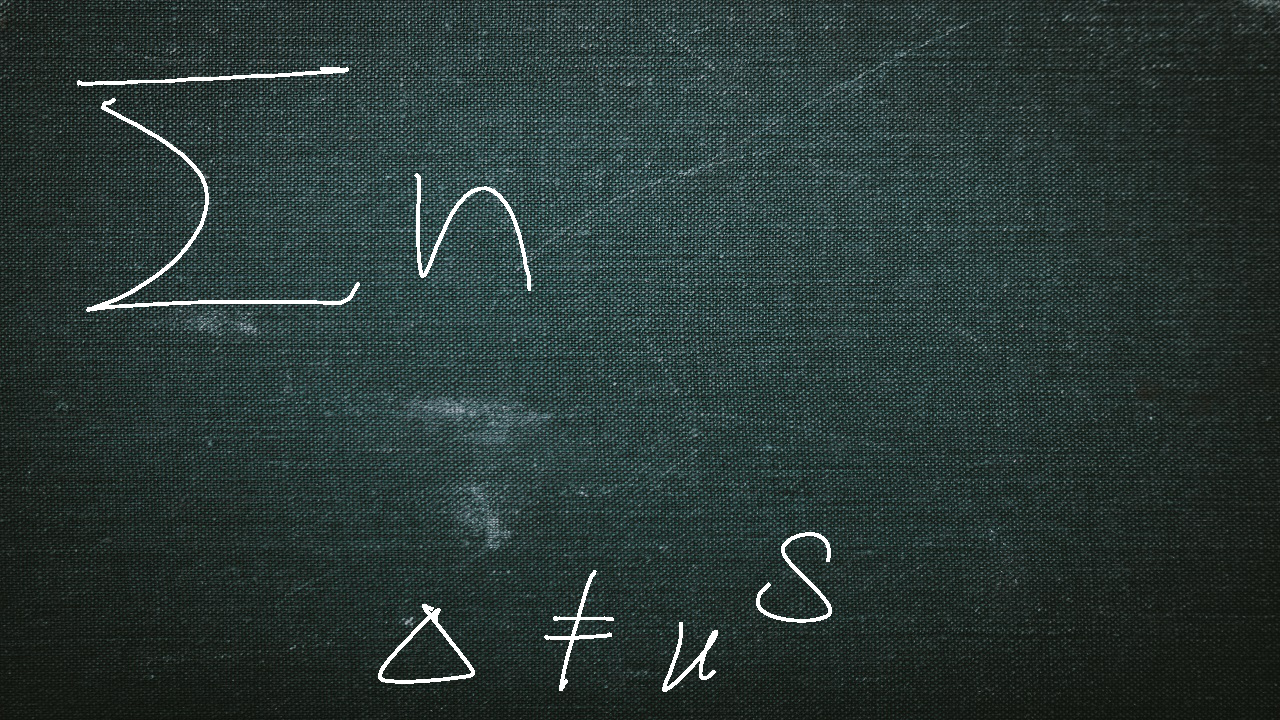 ∑ n
Δ ≠ u^S